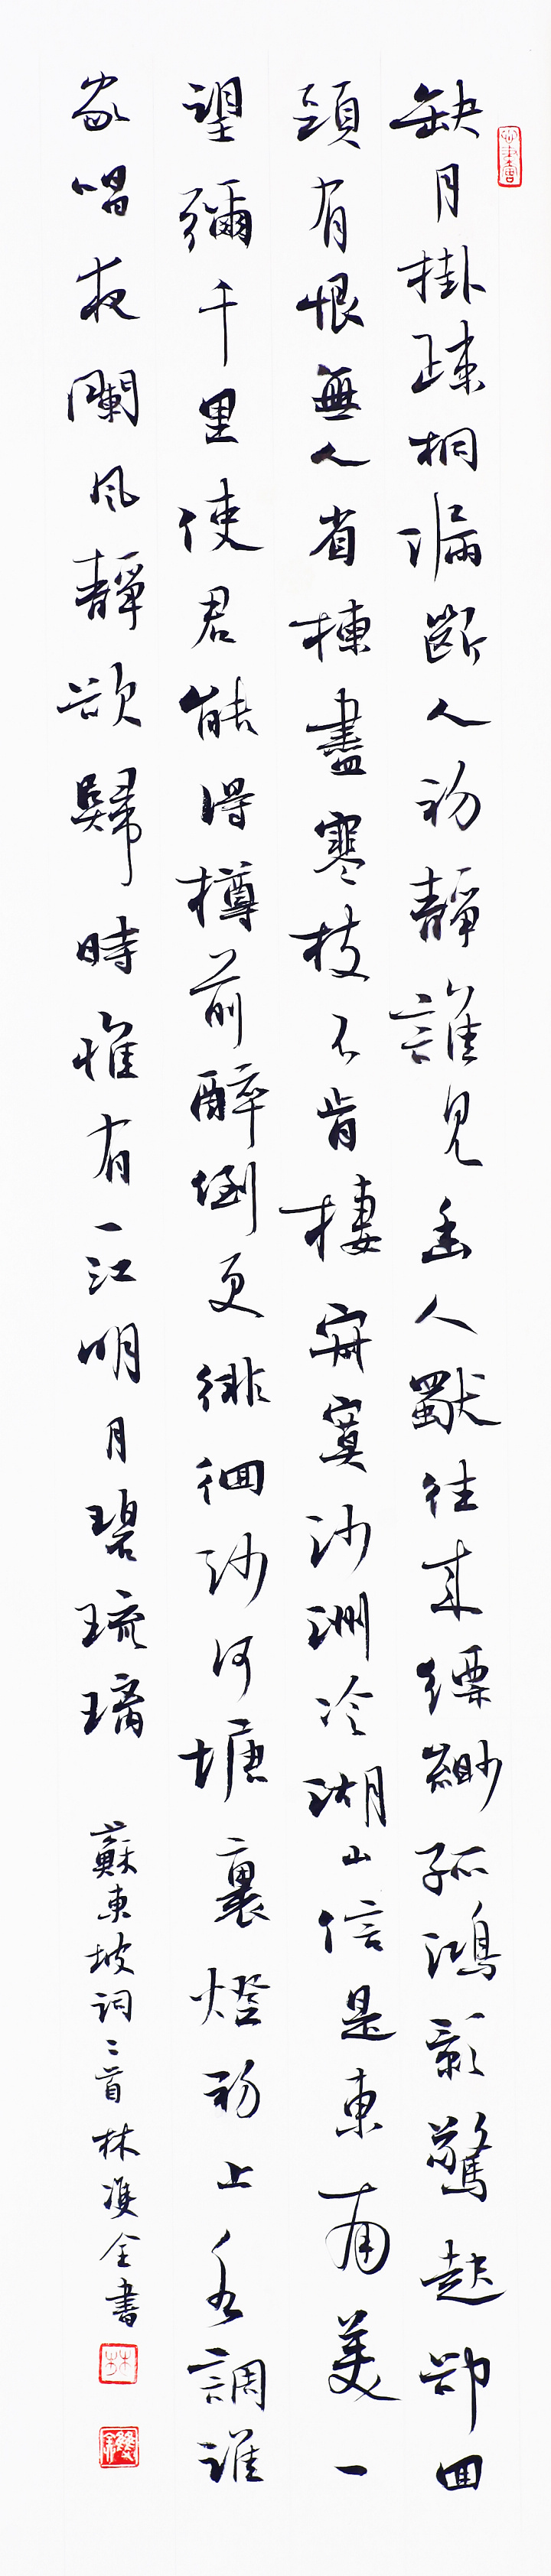 缺月掛疎桐漏斷人初靜誰見幽人獨往來縹緲孤鴻影驚起卻回
頭有恨無人省揀盡寒枝不肯棲寂寞沙洲冷湖山信是東南美一
望彌千里使君能得樽前醉倒更徘徊沙河塘裏燈初上水調誰
家唱夜闌風靜欲歸時惟有一江明月碧琉璃
蘇東坡詞二首林雙全書
林